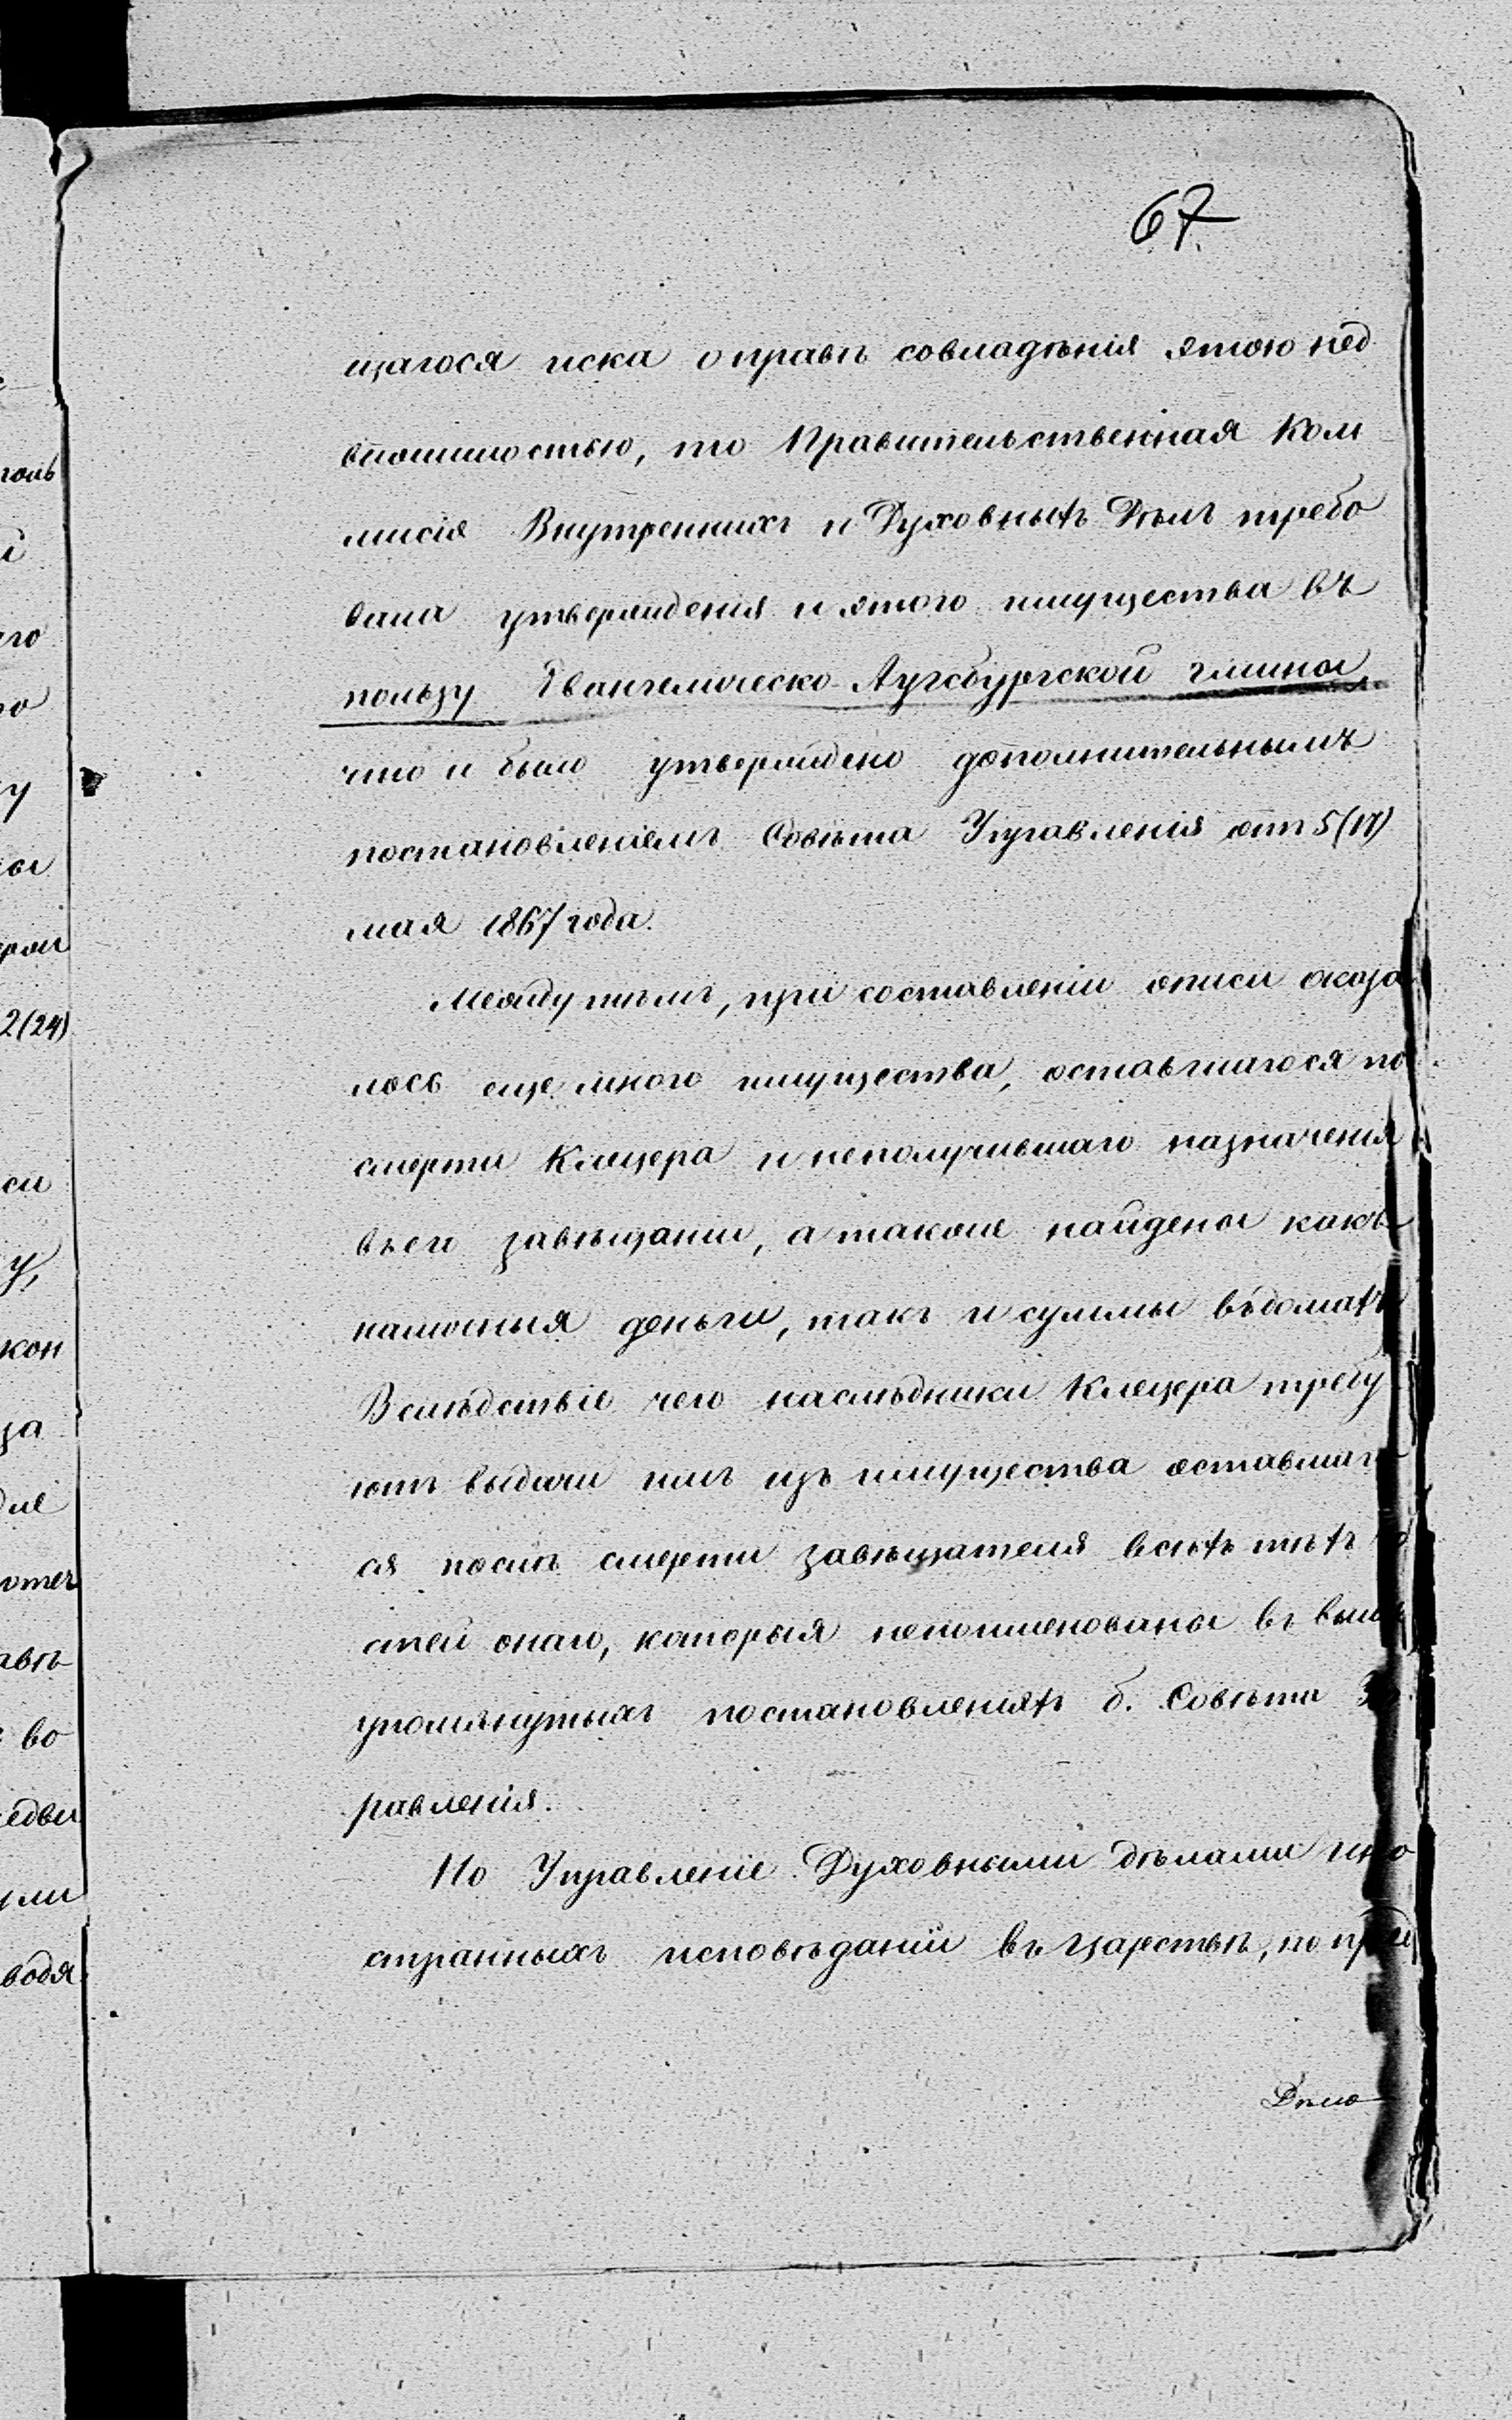 67.
щагося иска о правѣ совладѣнія этою нед
вижимостью, то Правительственная Ком
мисія Внутреннихъ и Духовныхъ Дѣлъ требо
вала утвержденія и этого имущества въ
пользу Евангелическо-Аугсбургской гмины,
что и было утверждено дополнительнымъ
постановленіемъ Совѣта Управленія отъ 5 (17)
мая 1867 года.
Между тѣмъ, при составленіи описи оказа
лось еще много имущества, оставшагося по
смерти Клецера и неполучившаго назначенія
въ его завѣщаніи, а также найдены какъ
наличныя деньги, такъ и суммы въ домахъ
Вслѣдствіе чего наслѣдники Клецера требу
ютъ выдачи имъ изъ имущества оставшаго
ся послѣ смерти завѣщателя всѣхъ тѣхъ
стей онаго, которыя непоименованы въ выше
упомянутыхъ постановленіяхъ б. Совѣта Уп
равленія.
Но Управленіе Духовными дѣлами ино
странныхъ исповѣданій въ Царствѣ, по пред
Дѣло
голь
его
го
у
ы
2 (24)
си
у,
кон
за
отец
авѣ
во
едви
ими
водя